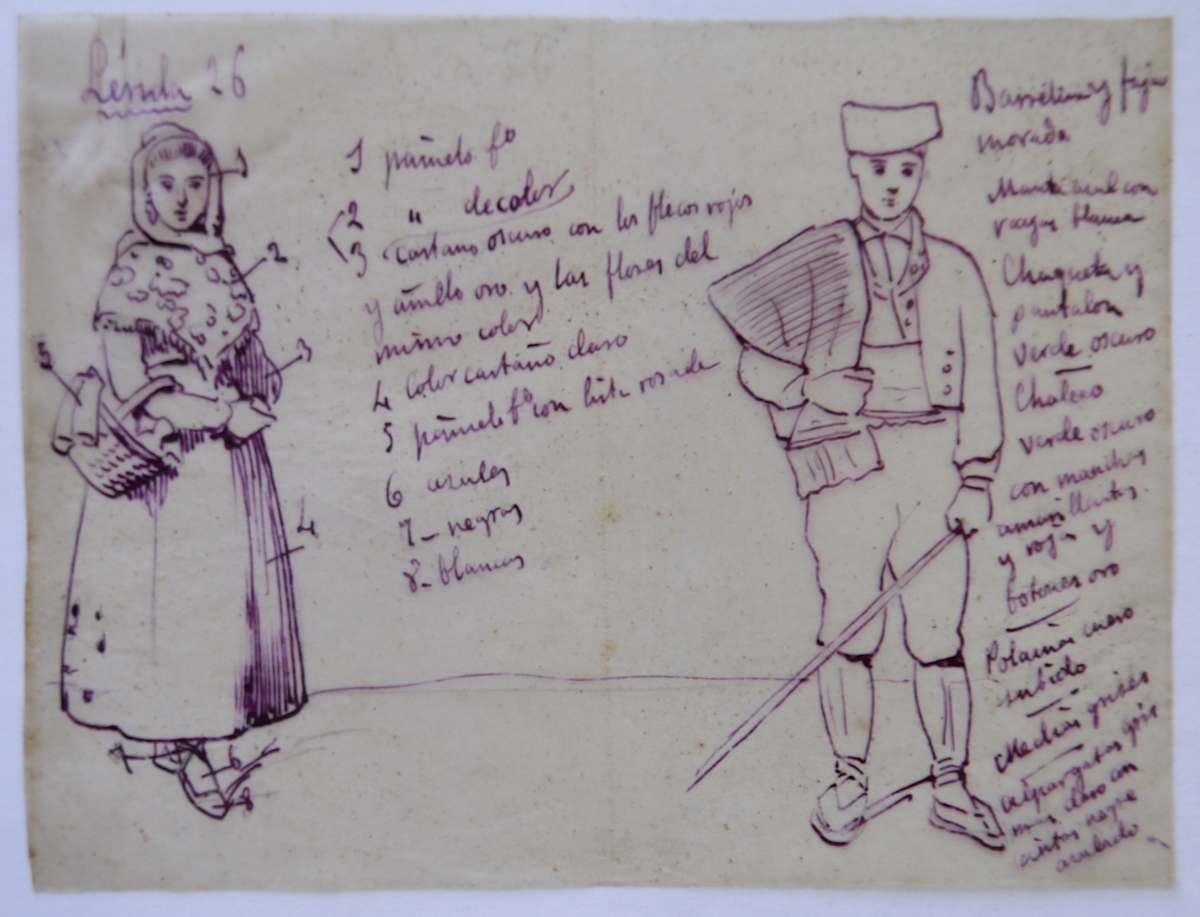 Lérida 26
1 pañuelo fº
2 " de color
3 castano oscuro con los flecos rojos
y anillo oro y las flores del
mismo color
4 color castaño claro
5 pañuelo bº con lista rosada
6 azules
7 - negras
8 - blancas
1
2
3
4
5
6
7
8
Barretina y faja
morada
Manta azul con
rayas blanca
Chaqueta y
pantalon
verde oscuro
Chaleco
verde oscuro
con manchas
amarillentas
y rojas y
botones oro
Polainas cuero
subido
Medias grises
alpargatas gris
mas claro con
cintas negre
azulado